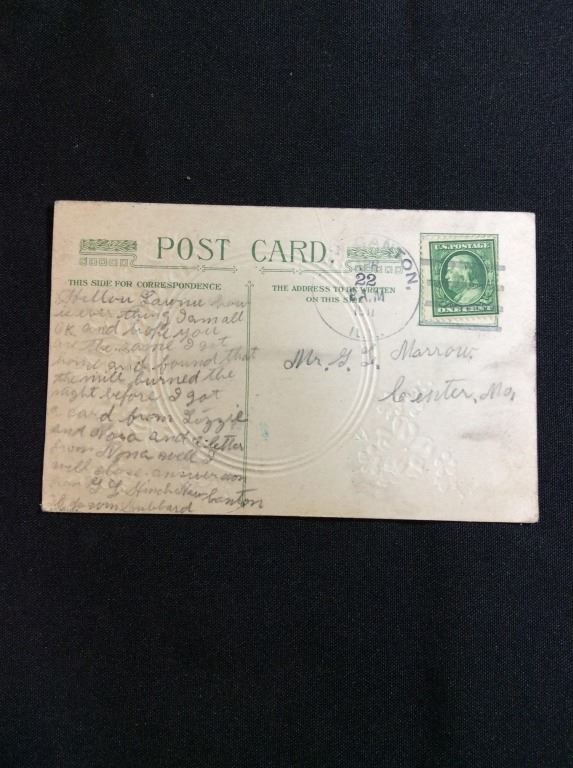 POST CARD.
THIS SIDE FOR CORRESPONDENCE
THE ADDRESS TO BE WRITTEN
ON THIS SIDE
TON,
22
A.M
U.S. POSTAGE
ONE CENT
Mr. G. L. Marrow.
Mo,
Hellow how
is ever thing I am all
OK and hope you
are the same I got
home and found that
the mill burned the
night before I got
a card from Lizzie
and Nora and a letter
from Nona well I
will close answer soon
from G L Canton
Hubbard